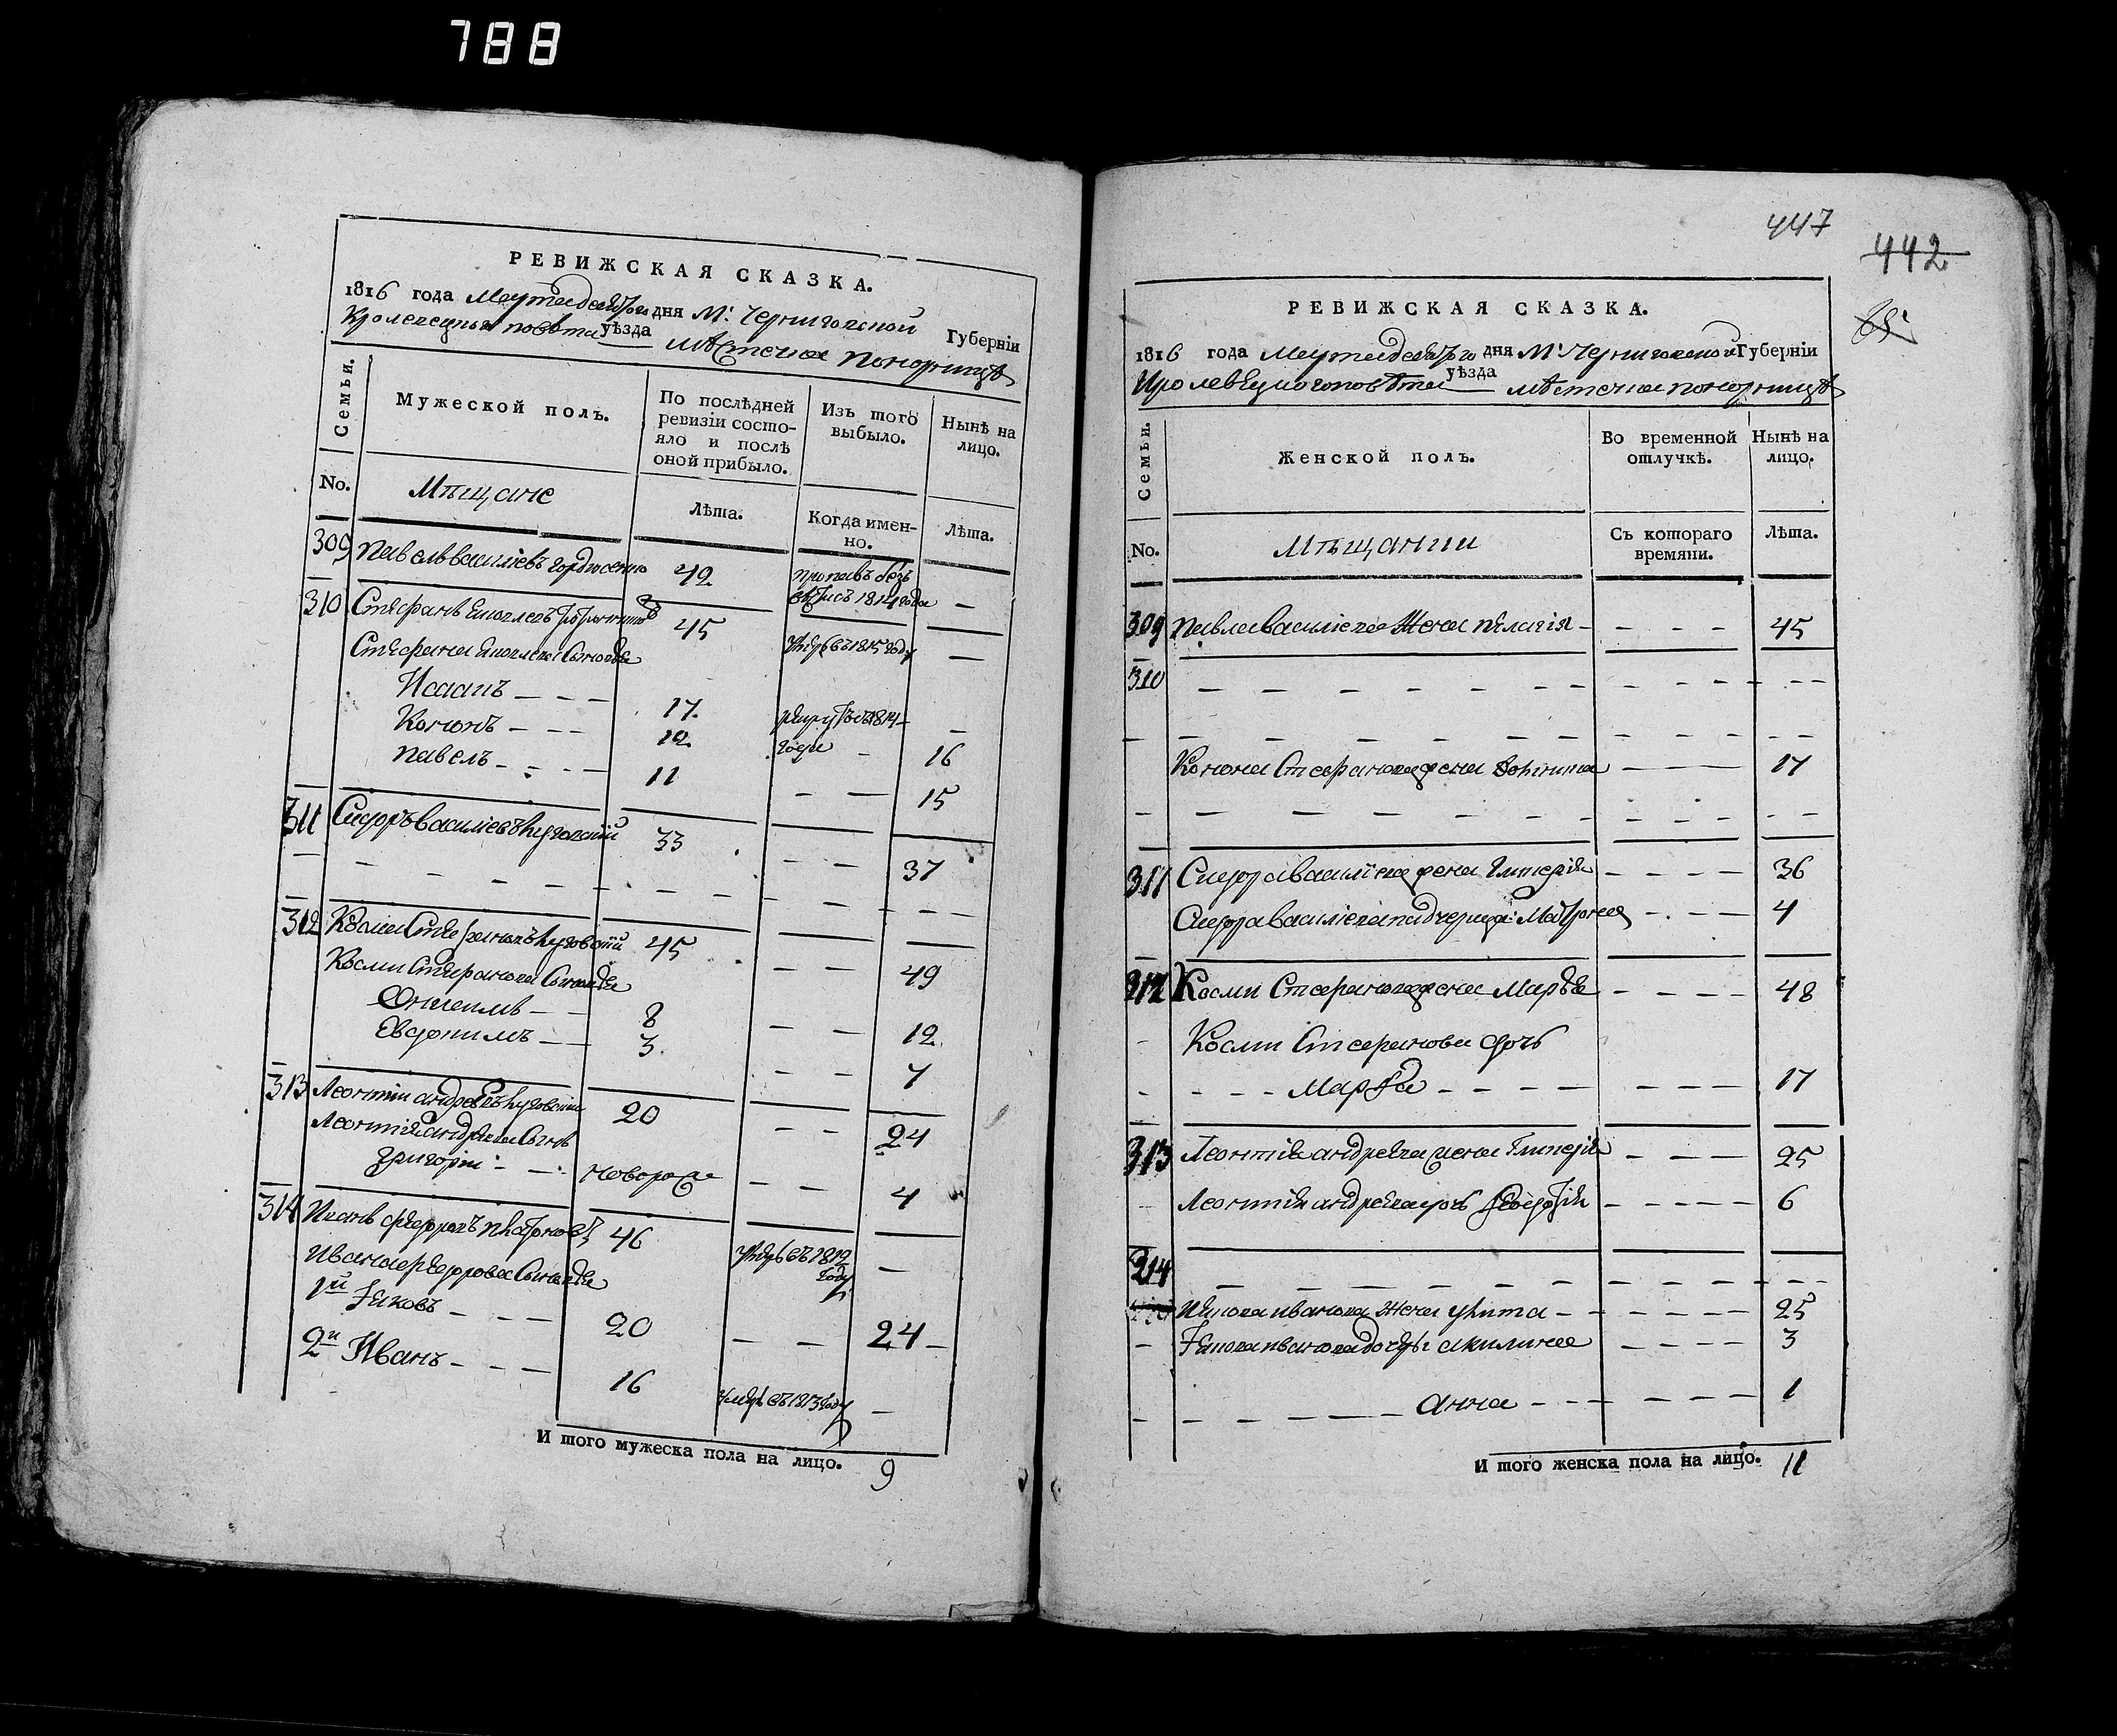 788
РЕВИЖСКАЯ СКАЗКА.
1816 года дня М: Черниговской Губерніи
Кролевецкого повѣта уѣзда мѣстечка Понорницѣ
Семьи.
Мужеской полъ.
По послѣдней ревизіи состояло и послѣ оной прибыло.
Изъ того выбыло.
Нынѣ на лицо.
No.
Мѣщане
Лѣта.
Когда именно.
Лѣта.
309 Павелъ Василіевъ 42 пропавъ безъ 1814 года —
310 Стефанъ 45 умеръ въ 1815 году —
Стефана Сыновья
Исаакъ — — — 17. 1814 —
Кононъ — — — 12. года — 16
Павелъ — — — — 11 — — 15
311 Сидоръ Василіевъ 33 — — 37
312 Косма Стефановъ 45 — — 49
Косми Стефанова Сыновья
8 — — 12.
3. — — 7
313 Леонтій Андреевъ 20 — — 24
Леонтія Андреева Сынъ
Григорій — — новорож — — 4
314 Иванъ Федоровъ 46 умеръ въ 1812 году —
Ивана Федорова Сыновья
1й Яковъ — — — 20 — — 24 —
2й Иванъ — — — 16 умеръ въ 1813 году —
И того мужеска пола на лицо. 9
447
442
РЕВИЖСКАЯ СКАЗКА.
1816 года дня М: Черниговской Губерніи
Кролевецкого повѣта уѣзда мѣстечка Понорницѣ
Семьи.
Женской полъ.
Во временной отлучкѣ.
Нынѣ на лицо.
No.
Мѣщанки
Съ котораго времяни.
Лѣта.
309 Павла Василіева Жена Пелагія — — — — 45
310
Конона Стефанова жена — — — — 17
311 Сидора Василіева жена Гликерія — — — — 36
Сидора Василіева падчерица: Матрона — — — 4
312 Косми Стефанова жена Марья — — — — 48
Косми Стефанова дочь
— — — — Марфа — — — — — — — 17
313 Леонтія Андреева жена Гликерія — — — 25
Леонтія Андреева дочь — — — — 6
314
Якова Иванова Жена Улита — — — — — — 25
Якова Иванова дочеры Акилина — — — — 3
— — — — — — Анна — — — — — — 1
И того женска пола на лицо. 11